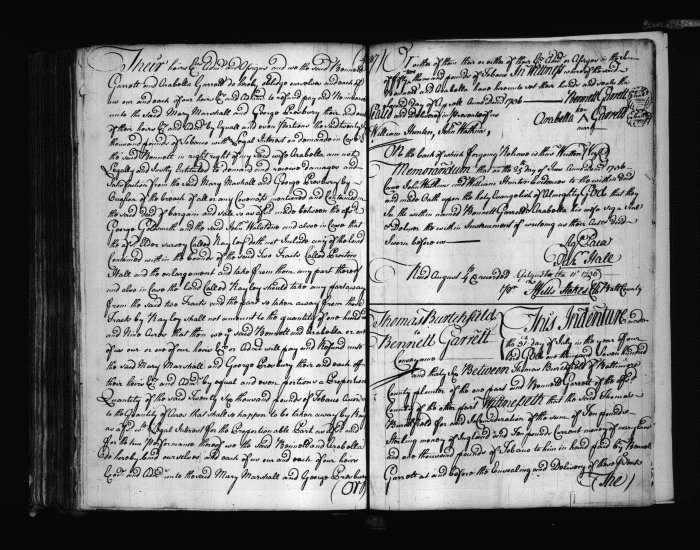 Their heirs Exrs Admrs and Assigns and we the said Bennett
Garrett and Arabella Garrett do hereby oblidge ourselves and each of
us our and each of our heirs Exrs and Admrs to refund pay and Reimburse
unto the said Mary Marshall and George Presbury their and each
of their heirs Exrs and Admrs by equall and even Portions the said twenty six
thousand pounds of Tobacco with Legal Interest on demand in Case
the said Bennett in right of my said wife Arabella am not
Legally and Justly Entituled to demand and recover damages and
Satisfaction from the said Mary Marshall and George Presbury by
Reason of the breach of all or any Covenants mentioned and Contained in
the said deed of bargain and sale as afsd. made between the afsd.
George Goldsmith and the said John Walstone and also in Case that
the afsd. Elder survey Called Nayloy doth not Include any of the land
Contained within the bounds of the said Two Tracts Called Proctors
Hall and the enlargement and take from them any part thereof
and also in Case the land Called Nayloy should take any part away
from the said two Tracts and the part so taken away from those
Tracts by Nayloy shall not amount to the quantity of one hundred
and Nine Acres that then we ye said Bennett and Arabella or one
of us our or one of our heirs Exrs or Admrs will pay and Refund unto
the said Mary Marshall and George Presbury their and each of
their heirs Exrs and Admrs by equal and even portions a Proportionable
Quantity of the said Twenty Six thousand pounds of Tobacco according
to the Quantity of Acres that shall so happen to be taken away by Nayloy
as afsd. with Legal Interest for the Proportionable Part as afsd. and
for the true Performance thereof we the said Bennett and Arabella
do hereby bind ourselves and each of us our and each of our heirs
Exrs and Admrs unto the said Mary Marshall and George Presbury
(Or)
Or either of them their or either of their Exrs Admrs or Assigns in the sum
of fifty two thousand pounds of Tobacco In Witness whereof the said
Bennett and Arabella have hereunto set their hands and seals this
second day of August Anno Dom 1736
Bennett Garrett
Sealed and Delivered in Presence of us
her
Arabella Garrett
mark
William Hunter, John Watkins,
On the back of which foregoing Release is thus Written (Viz)
Memorandum that on the 25 day of June Anno Dom 1736
Came John Watkins and William Hunter Evidences to the within deed
and made Oath upon the holy Evangelist of Almighty God that they
Saw the within named Bennett Garrett & Arabella his wife sign Seal
& Deliver the within Instrument of writing as their act & deed
Sworn before us
Paca
Hall
Recd August 4th & recorded 11th 1736
pr Wells Stokes Clk Balt County
Thomas Burchfield
Bennett Garrett
Conveyance
This Indenture made
the 3d day of July in the year of our
Lord God one thousand Seven hundred
and thirty Six Between Thomas Burchfield of Baltimore
County planter of the one part and Bennett Garrett of the afsd.
County of the other part Witnesseth that the said Thomas
Burchfield for and in Consideration of the sum of Ten pounds
Sterling money of England and Ten pounds Current money of maryland
and one thousand pounds of Tobacco to him in hand paid by Bennett
Garrett at and before the Ensealing and Delivery of these Presents
(The)